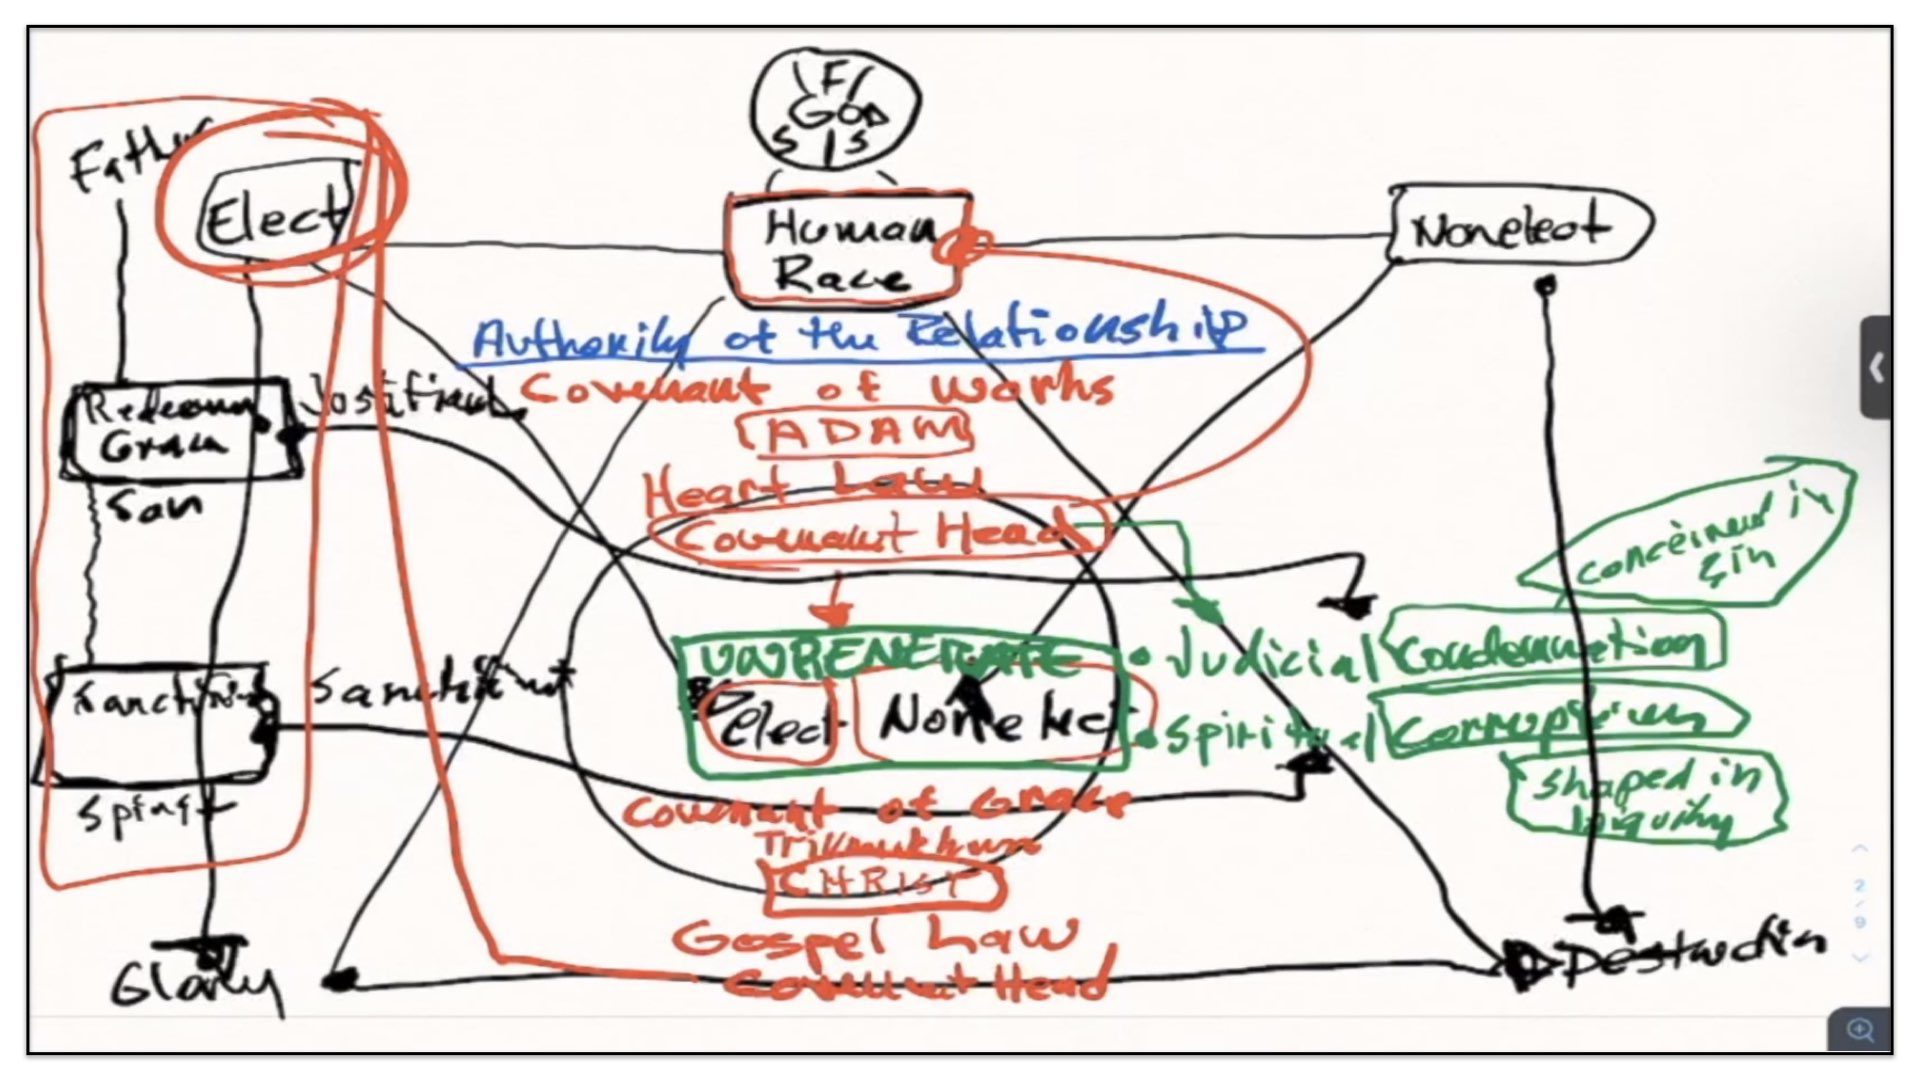 F
GOD
S S
Father
Elect
Human
Race
Nonelect
Authority of the Relationship
Covenant of Works
ADAM
Heart Law
Covenant Head
Justified
Grace
Son
conceived in
sin
UNREGENERATE
Elect
Nonelect
• Judicial Condemnation
• Spiritual Corruption
shaped in
Iniquity
Spirit
Covenant of Grace
CHRIST
Gospel Law
Covenant Head
Glory
Destruction
2/9